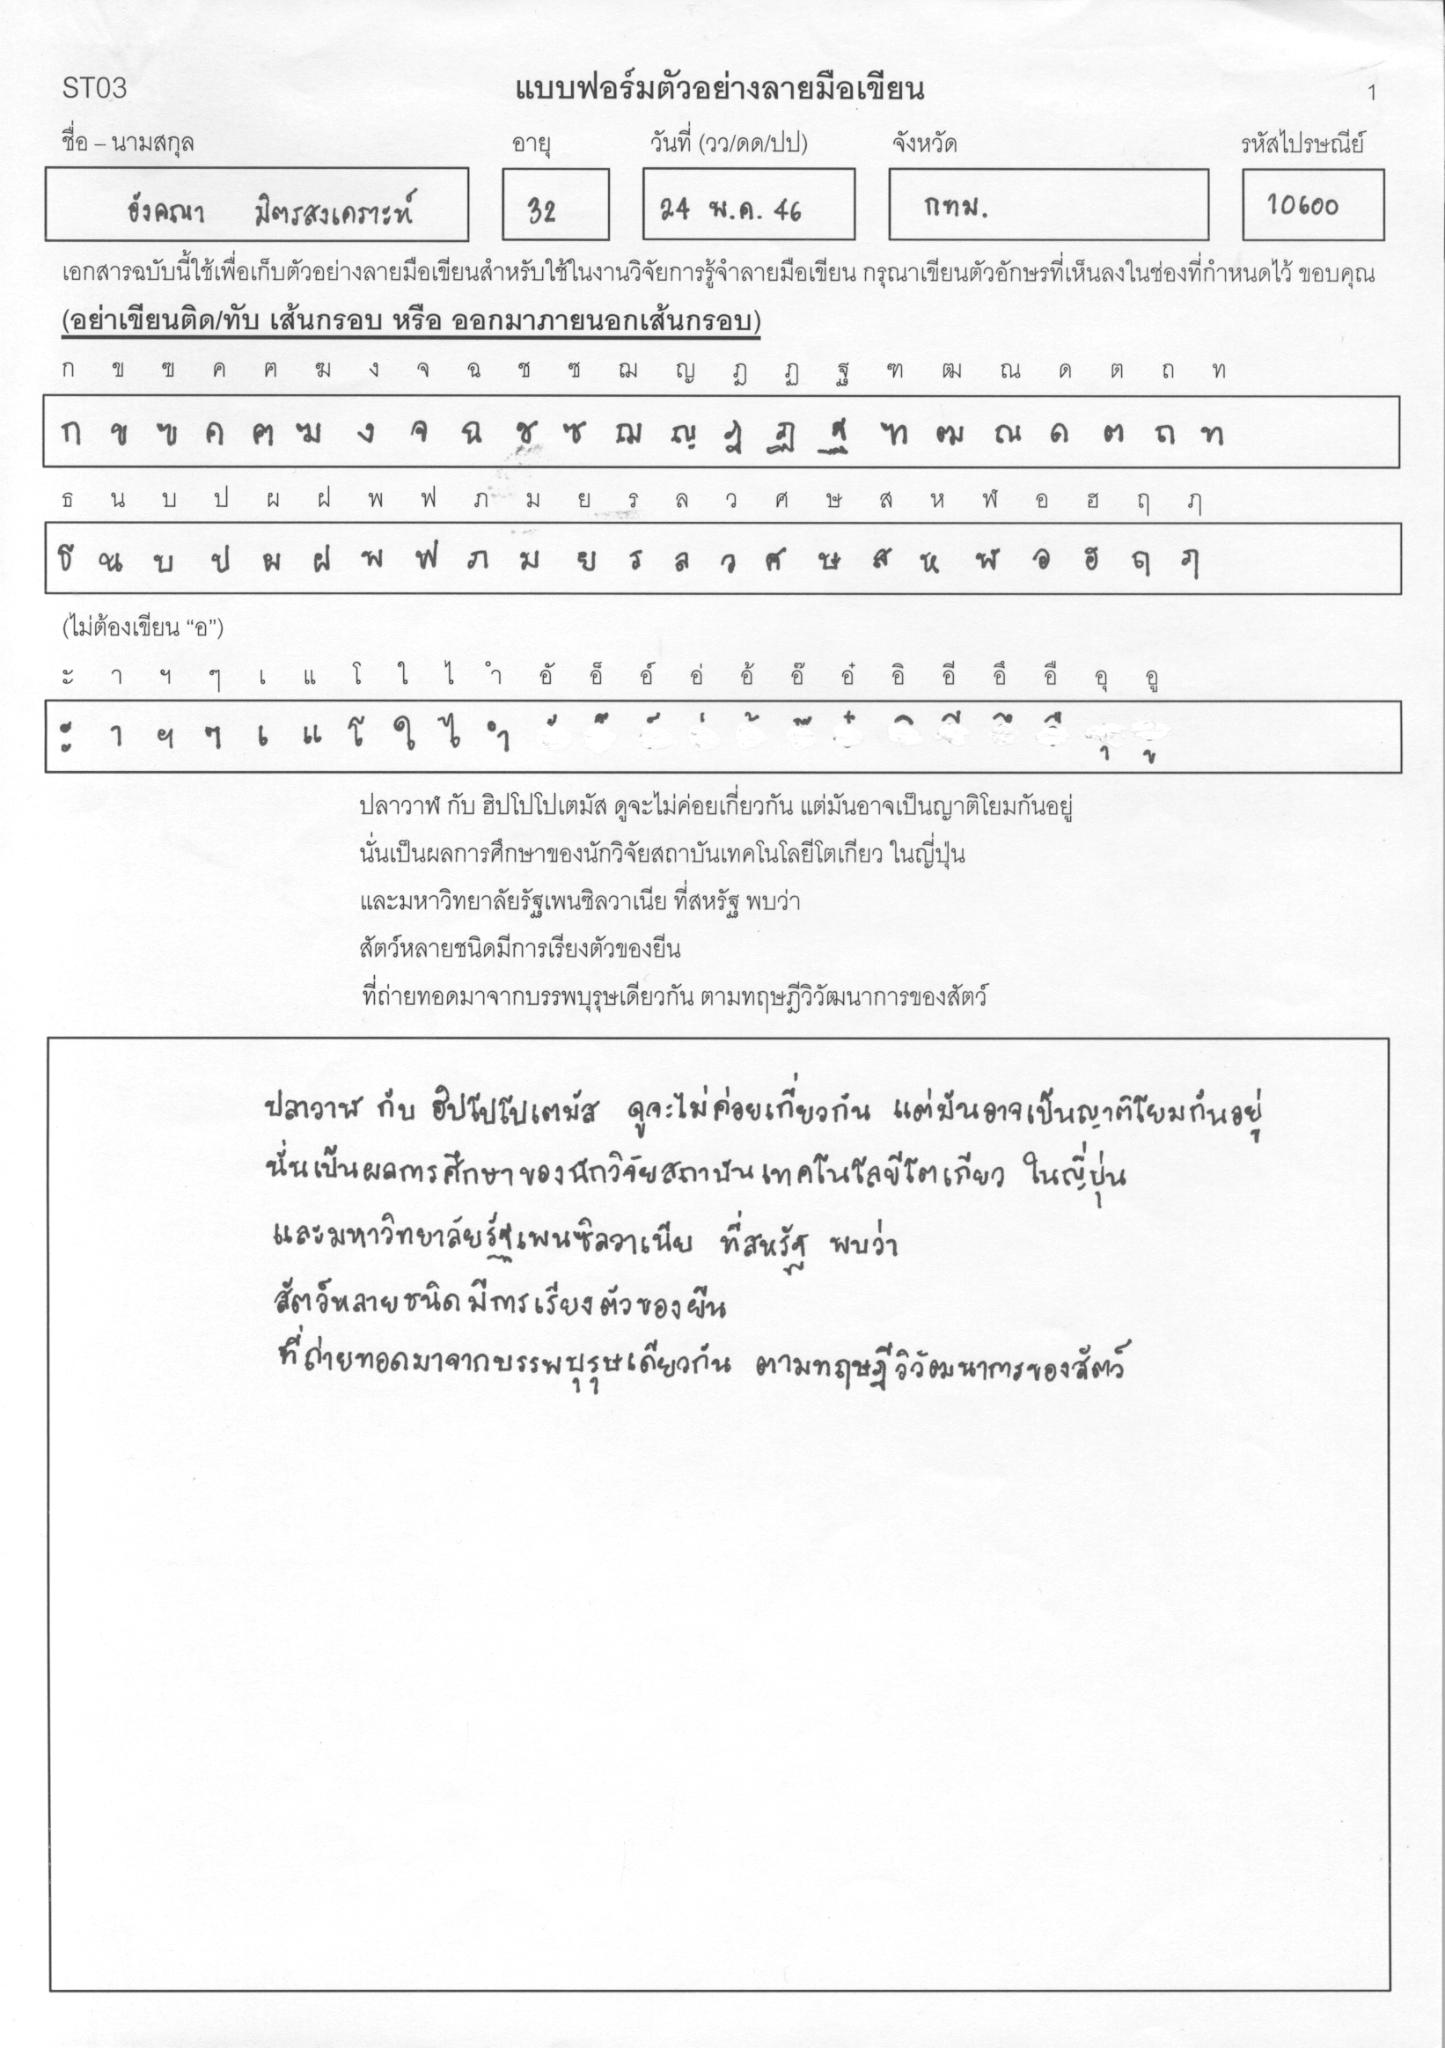 ST03 แบบฟอร์มตัวอย่างลายมือเขียน 1
ชื่อ – นามสกุล อายุ วันที่ (วว/ดด/ปป) จังหวัด รหัสไปรษณีย์
อังคณา มิตรสงเคราะห์ 32 24 พ.ค. 46 กทม. 10600
เอกสารฉบับนี้ใช้เพื่อเก็บตัวอย่างลายมือเขียนสำหรับใช้ในงานวิจัยการรู้จำลายมือเขียน กรุณาเขียนตัวอักษรที่เห็นลงในช่องที่กำหนดไว้ ขอบคุณ
(อย่าเขียนติด/ทับ เส้นกรอบ หรือ ออกมาภายนอกเส้นกรอบ)
ก ข ฃ ค ฅ ฆ ง จ ฉ ช ซ ฌ ญ ฎ ฏ ฐ ฑ ฒ ณ ด ต ถ ท
ก ข ฃ ค ฅ ฆ ง จ ฉ ช ซ ฌ ญ ฎ ฏ ฐ ฑ ฒ ณ ด ต ถ ท
ธ น บ ป ผ ฝ พ ฟ ภ ม ย ร ล ว ศ ษ ส ห ฬ อ ฮ ฤ ฦ
ธ น บ ป ผ ฝ พ ฟ ภ ม ย ร ล ว ศ ษ ส ห ฬ อ ฮ ฤ ฦ
(ไม่ต้องเขียน “อ”)
ะ า ฯ ๆ เ แ โ ใ ไ ำ อั อ็ อ์ อ่ อ้ อ๊ อ๋ อิ อี อึ อื อุ อู
ะ า ฯ ๆ เ แ โ ใ ไ ำ ั ็ ์ ่ ้ ๊ ๋ ิ ี ึ ื ุ ู
ปลาวาฬ กับ ฮิปโปโปเตมัส ดูจะไม่ค่อยเกี่ยวกัน แต่มันอาจเป็นญาติโยมกันอยู่
นั่นเป็นผลการศึกษาของนักวิจัยสถาบันเทคโนโลยีโตเกียว ในญี่ปุ่น
และมหาวิทยาลัยรัฐเพนซิลวาเนีย ที่สหรัฐ พบว่า
สัตว์หลายชนิดมีการเรียงตัวของยีน
ที่ถ่ายทอดมาจากบรรพบุรุษเดียวกัน ตามทฤษฎีวิวัฒนาการของสัตว์
ปลาวาฬ กับ ฮิปโปโปเตมัส ดูจะไม่ค่อยเกี่ยวกัน แต่มันอาจเป็นญาติโยมกันอยู่
นั่นเป็นผลการศึกษาของนักวิจัยสถาบันเทคโนโลยีโตเกียว ในญี่ปุ่น
และมหาวิทยาลัยรัฐเพนซิลวาเนีย ที่สหรัฐ พบว่า
สัตว์หลายชนิดมีการเรียงตัวของยีน
ที่ถ่ายทอดมาจากบรรพบุรุษเดียวกัน ตามทฤษฎีวิวัฒนาการของสัตว์